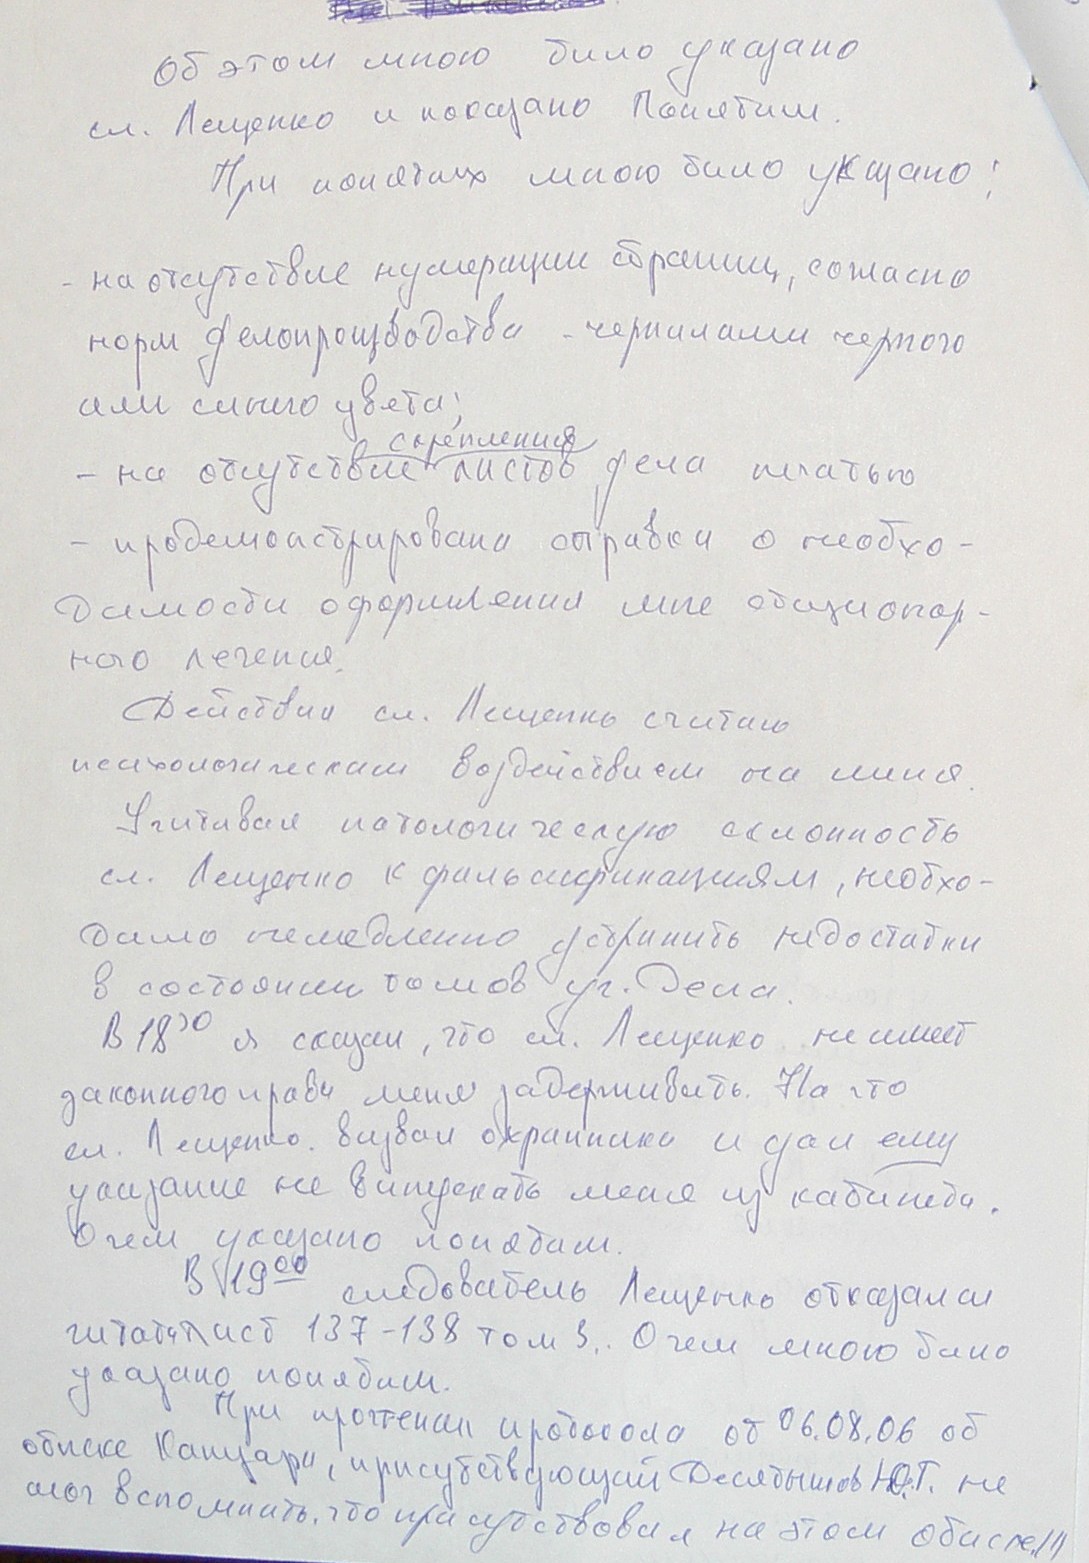 Об этом мною было указано
сл. Лещенко и показано Понятым.
При понятых мною было указано:
- на отсутствие нумерации страниц, согласно
норм делопроизводства - чернилами черного
или синего цвета;
скрепления
- на отсутствие листов дела печатью
- продемонстрирована справка о необхо-
димости оформления мне стационар-
ного лечения.
Действия сл. Лещенко считаю
психологическим воздействием на меня.
Учитывая патологическую склонность
сл. Лещенко к фальсификациям, необхо-
димо немедленно устранить недостатки
в состоянии томов уг. Дела.
В 18³⁰ я сказал, что сл. Лещенко не имеет
законного права меня задерживать. На что
сл. Лещенко. вызвал охранника и дал ему
указание не выпускать меня из кабинета.
О чем указано понятым.
В 19⁰⁰ следователь Лещенко отказался
читать лист 137-138 том 3,. О чем мною было
указано понятым.
При прочтении протокола от 06.08.06 об
обыске присутствующий Ю.Г. не
мог вспомнить, что присутствовал на этом обыске!!!